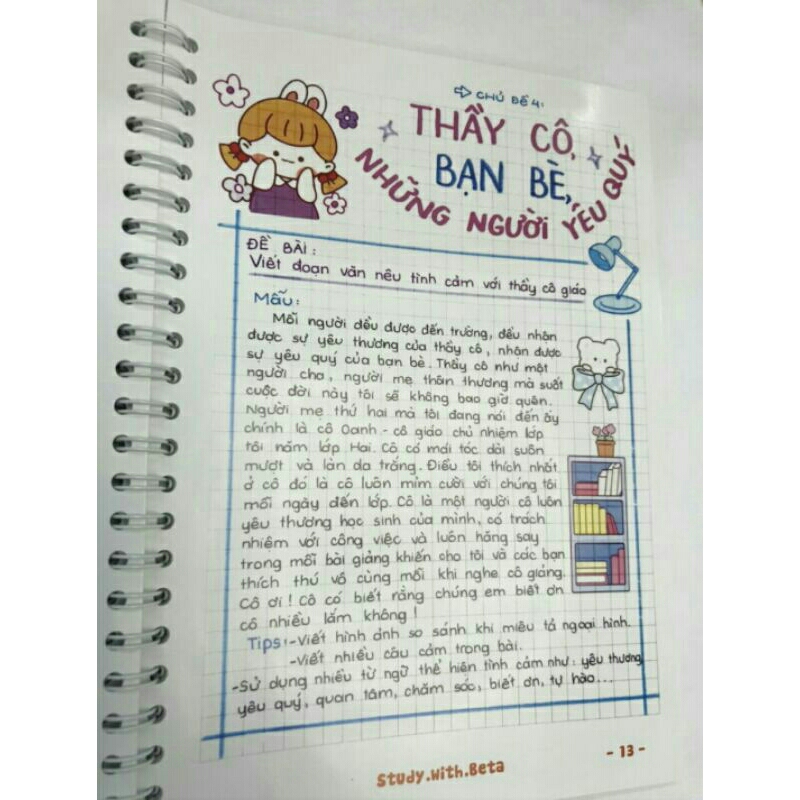 CHỦ ĐỀ 4:
THẦY CÔ,
BẠN BÈ,
NHỮNG NGƯỜI YÊU QUÝ
ĐỀ BÀI:
Viết đoạn văn nêu tình cảm với thầy cô giáo
Mẫu:
Mỗi người đều được đến trường, đều nhận
được sự yêu thương của thầy cô, nhận được
sự yêu quý của bạn bè. Thầy cô như một
người cha, người mẹ thân thương mà suốt
cuộc đời này tôi sẽ không bao giờ quên.
Người mẹ thứ hai mà tôi đang nói đến ấy
chính là cô Oanh - cô giáo chủ nhiệm lớp
tôi năm lớp Hai. Cô có mái tóc dài suôn
mượt và làn da trắng. Điều tôi thích nhất
ở cô đó là cô luôn mỉm cười với chúng tôi
mỗi ngày đến lớp. Cô là một người cô luôn
yêu thương học sinh của mình, có trách
nhiệm với công việc và luôn hăng say
trong mỗi bài giảng khiến cho tôi và các bạn
thích thú vô cùng mỗi khi nghe cô giảng.
Cô ơi! Cô có biết rằng chúng em biết ơn
cô nhiều lắm không!
Tips: -Viết hình ảnh so sánh khi miêu tả ngoại hình.
-Viết nhiều câu cảm trong bài.
-Sử dụng nhiều từ ngữ thể hiện tình cảm như: yêu thương,
yêu quý, quan tâm, chăm sóc, biết ơn, tự hào...
- 13 -
Study.With.Beta